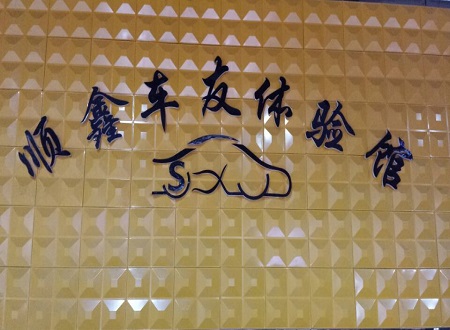 顺鑫车友体验馆
SXJ